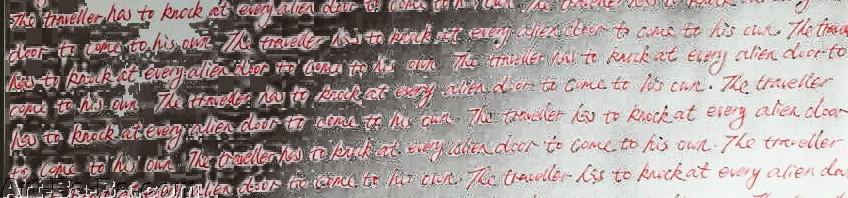 The traveller has to knock at every alien door to come to his own. The traveller has to knock at every
door to come to his own. The traveller has to knock at every alien door to come to his own. The traveller
has to knock at every alien door to come to his own. The traveller has to knock at every alien door to
come to his own. The traveller has to knock at every alien door to come to his own. The traveller
has to knock at every alien door to come to his own. The traveller has to knock at every alien door
to come to his own. The traveller has to knock at every alien door to come to his own. The traveller
at every alien door to come to his own. The traveller has to knock at every alien door